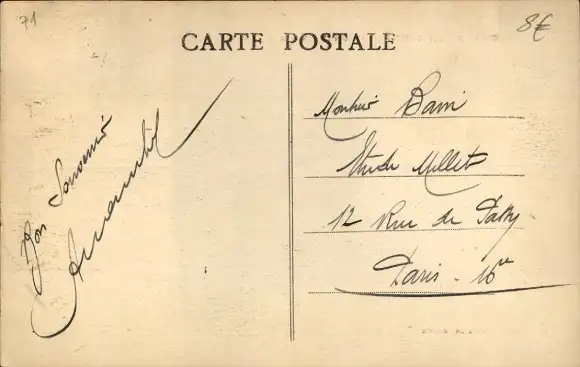 71
8€
CARTE POSTALE
Bon Souvenir
Monsieur
Etude Millet
12 Rue de Passy
Paris - 16e